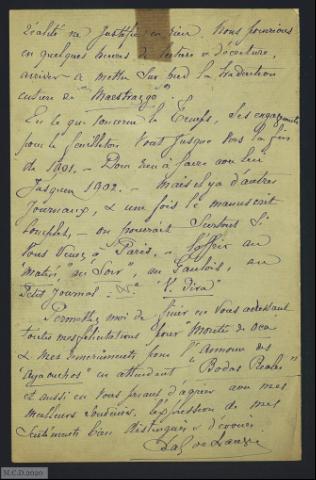 réalité ne justifie en rien. Nous pourrions
en quelques heures de lecture & d'écriture,
arriver à mettre sur pied la traduction
entière de "Maestrazgo".
En ce qui concerne le Temps, ses engagements
pour le feuilleton vont jusque vers la fin
de 1901. – Donc rien à faire avec lui
jusqu'en 1902. – Mais il y a d'autres
journaux, & une fois le manuscrit
complet, – on pourrait surtout si
vous venez à Paris, – l'offrir au
Matin, "au Soir", au Gaulois, au
Petit Journal –
Permettez moi de finir en vous adressant
toutes mes félicitations pour Montes de Oca
& mes remerciements pour l'annonce des
"Ayacuchos" en attendant "Bodas Reales"
et aussi en vous priant d'agréer avec mes
meilleurs souvenirs, l'expression de mes
sentiments bien distingués & dévoués.
M.C.D.2020